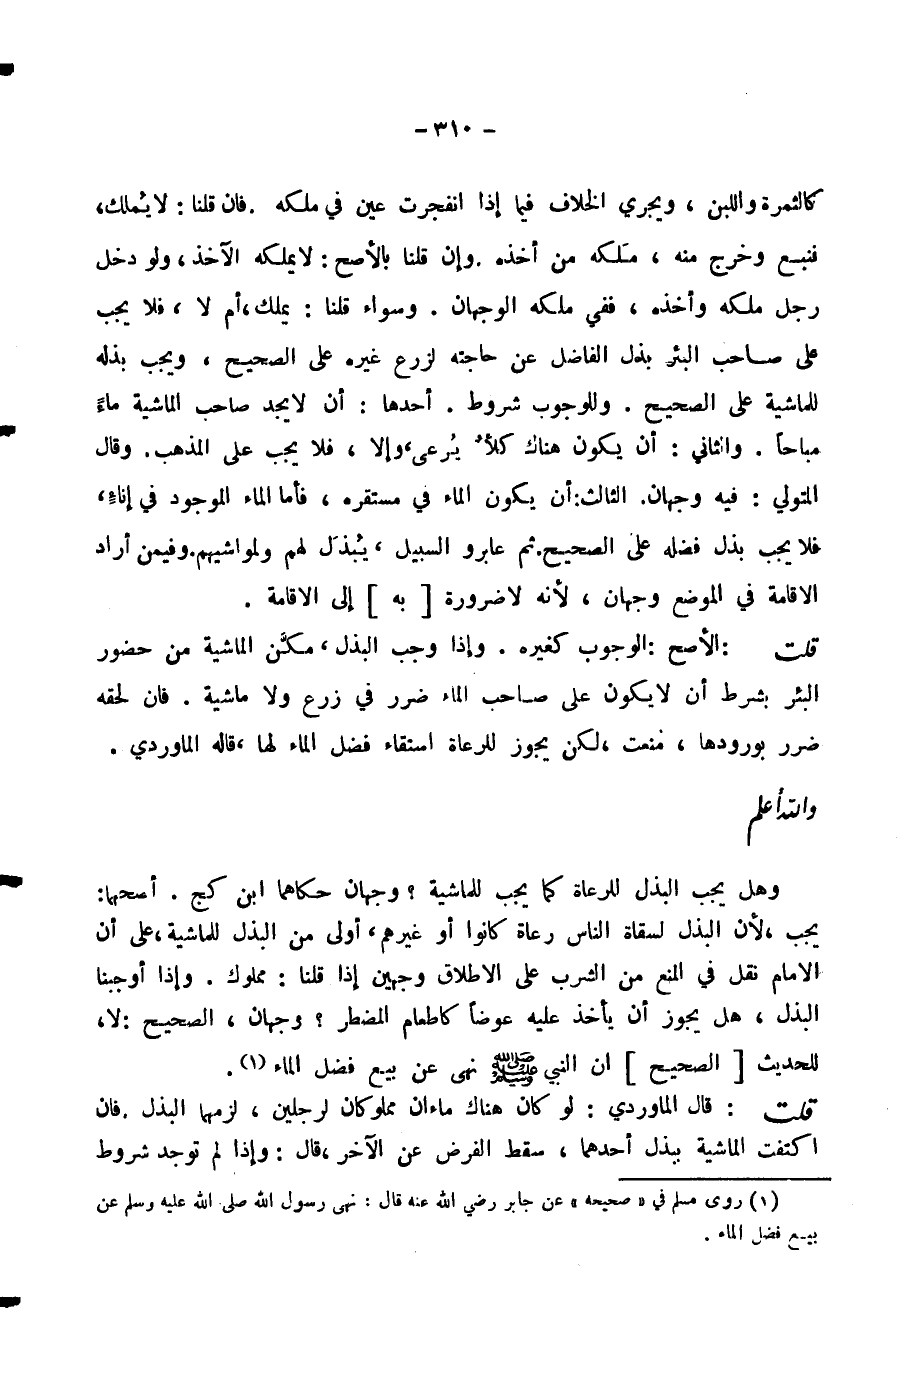 - ٣١٠ -
كالثمرة واللبن ، ويجري الخلاف فيما إذا انفجرت عين في ملكه . فان قلنا : لا يُملك،
فنبع وخرج منه ، مَلَكه من أخذه . وإن قلنا بالأصح : لا يملكه الآخذ ، ولو دخل
رجل ملكه وأخذه ، ففي ملكه الوجهان . وسواء قلنا : يملك ، أم لا ، فلا يجب
على صاحب البئر بذل الفاضل عن حاجته لزرع غيره على الصحيح ، ويجب بذله
للماشية على الصحيح . وللوجوب شروط . أحدها : أن لا يجد صاحب الماشية ماءً
مباحاً . والثاني : أن يكون هناك كلأٌ يُرعى ، وإلا ، فلا يجب على المذهب. وقال
المتولي : فيه وجهان. الثالث: أن يكون الماء في مستقره ، فأما الماء الموجود في إناءٍ ،
فلا يجب بذل فضله على الصحيح. ثم عابرو السبيل ، يُبْذَل لهم ولمواشيهم. وفيمن أراد
الاقامة في الموضع وجهان ، لأنه لا ضرورة [ به ] إلى الاقامة .
قلت : الأصح : الوجوب كغيره . وإذا وجب البذل ، مكَّن الماشية من حضور
البئر بشرط أن لا يكون على صاحب الماء ضرر في زرع ولا ماشية . فان لحقه
ضرر بورودها ، مُنعت ، لكن يجوز للرعاة استقاء فضل الماء لها ، قاله الماوردي .
والله أعلم
وهل يجب البذل للرعاة كما يجب للماشية ؟ وجهان حكاهما ابن كج . أصحها :
يجب ، لأن البذل لسقاة الناس رعاة كانوا أو غيرهم ، أولى من البذل للماشية ، على أن
الامام نقل في المنع من الشرب على الاطلاق وجهين إذا قلنا : مملوك . وإذا أوجبنا
البذل ، هل يجوز أن يأخذ عليه عوضاً كاطعام المضطر ؟ وجهان ، الصحيح : لا ،
للحديث [ الصحيح ] ان النبي ﷺ نهى عن بيع فضل الماء (١) .
قلت : قال الماوردي : لو كان هناك ماءان مملوكان لرجلين ، لزمها البذل . فان
اكتفت الماشية ببذل أحدهما ، سقط الفرض عن الآخر ، قال : وإذا لم توجد شروط
(١) روى مسلم في « صحيحه » عن جابر رضي الله عنه قال : نهى رسول الله صلى الله عليه وسلم عن
بيع فضل الماء .